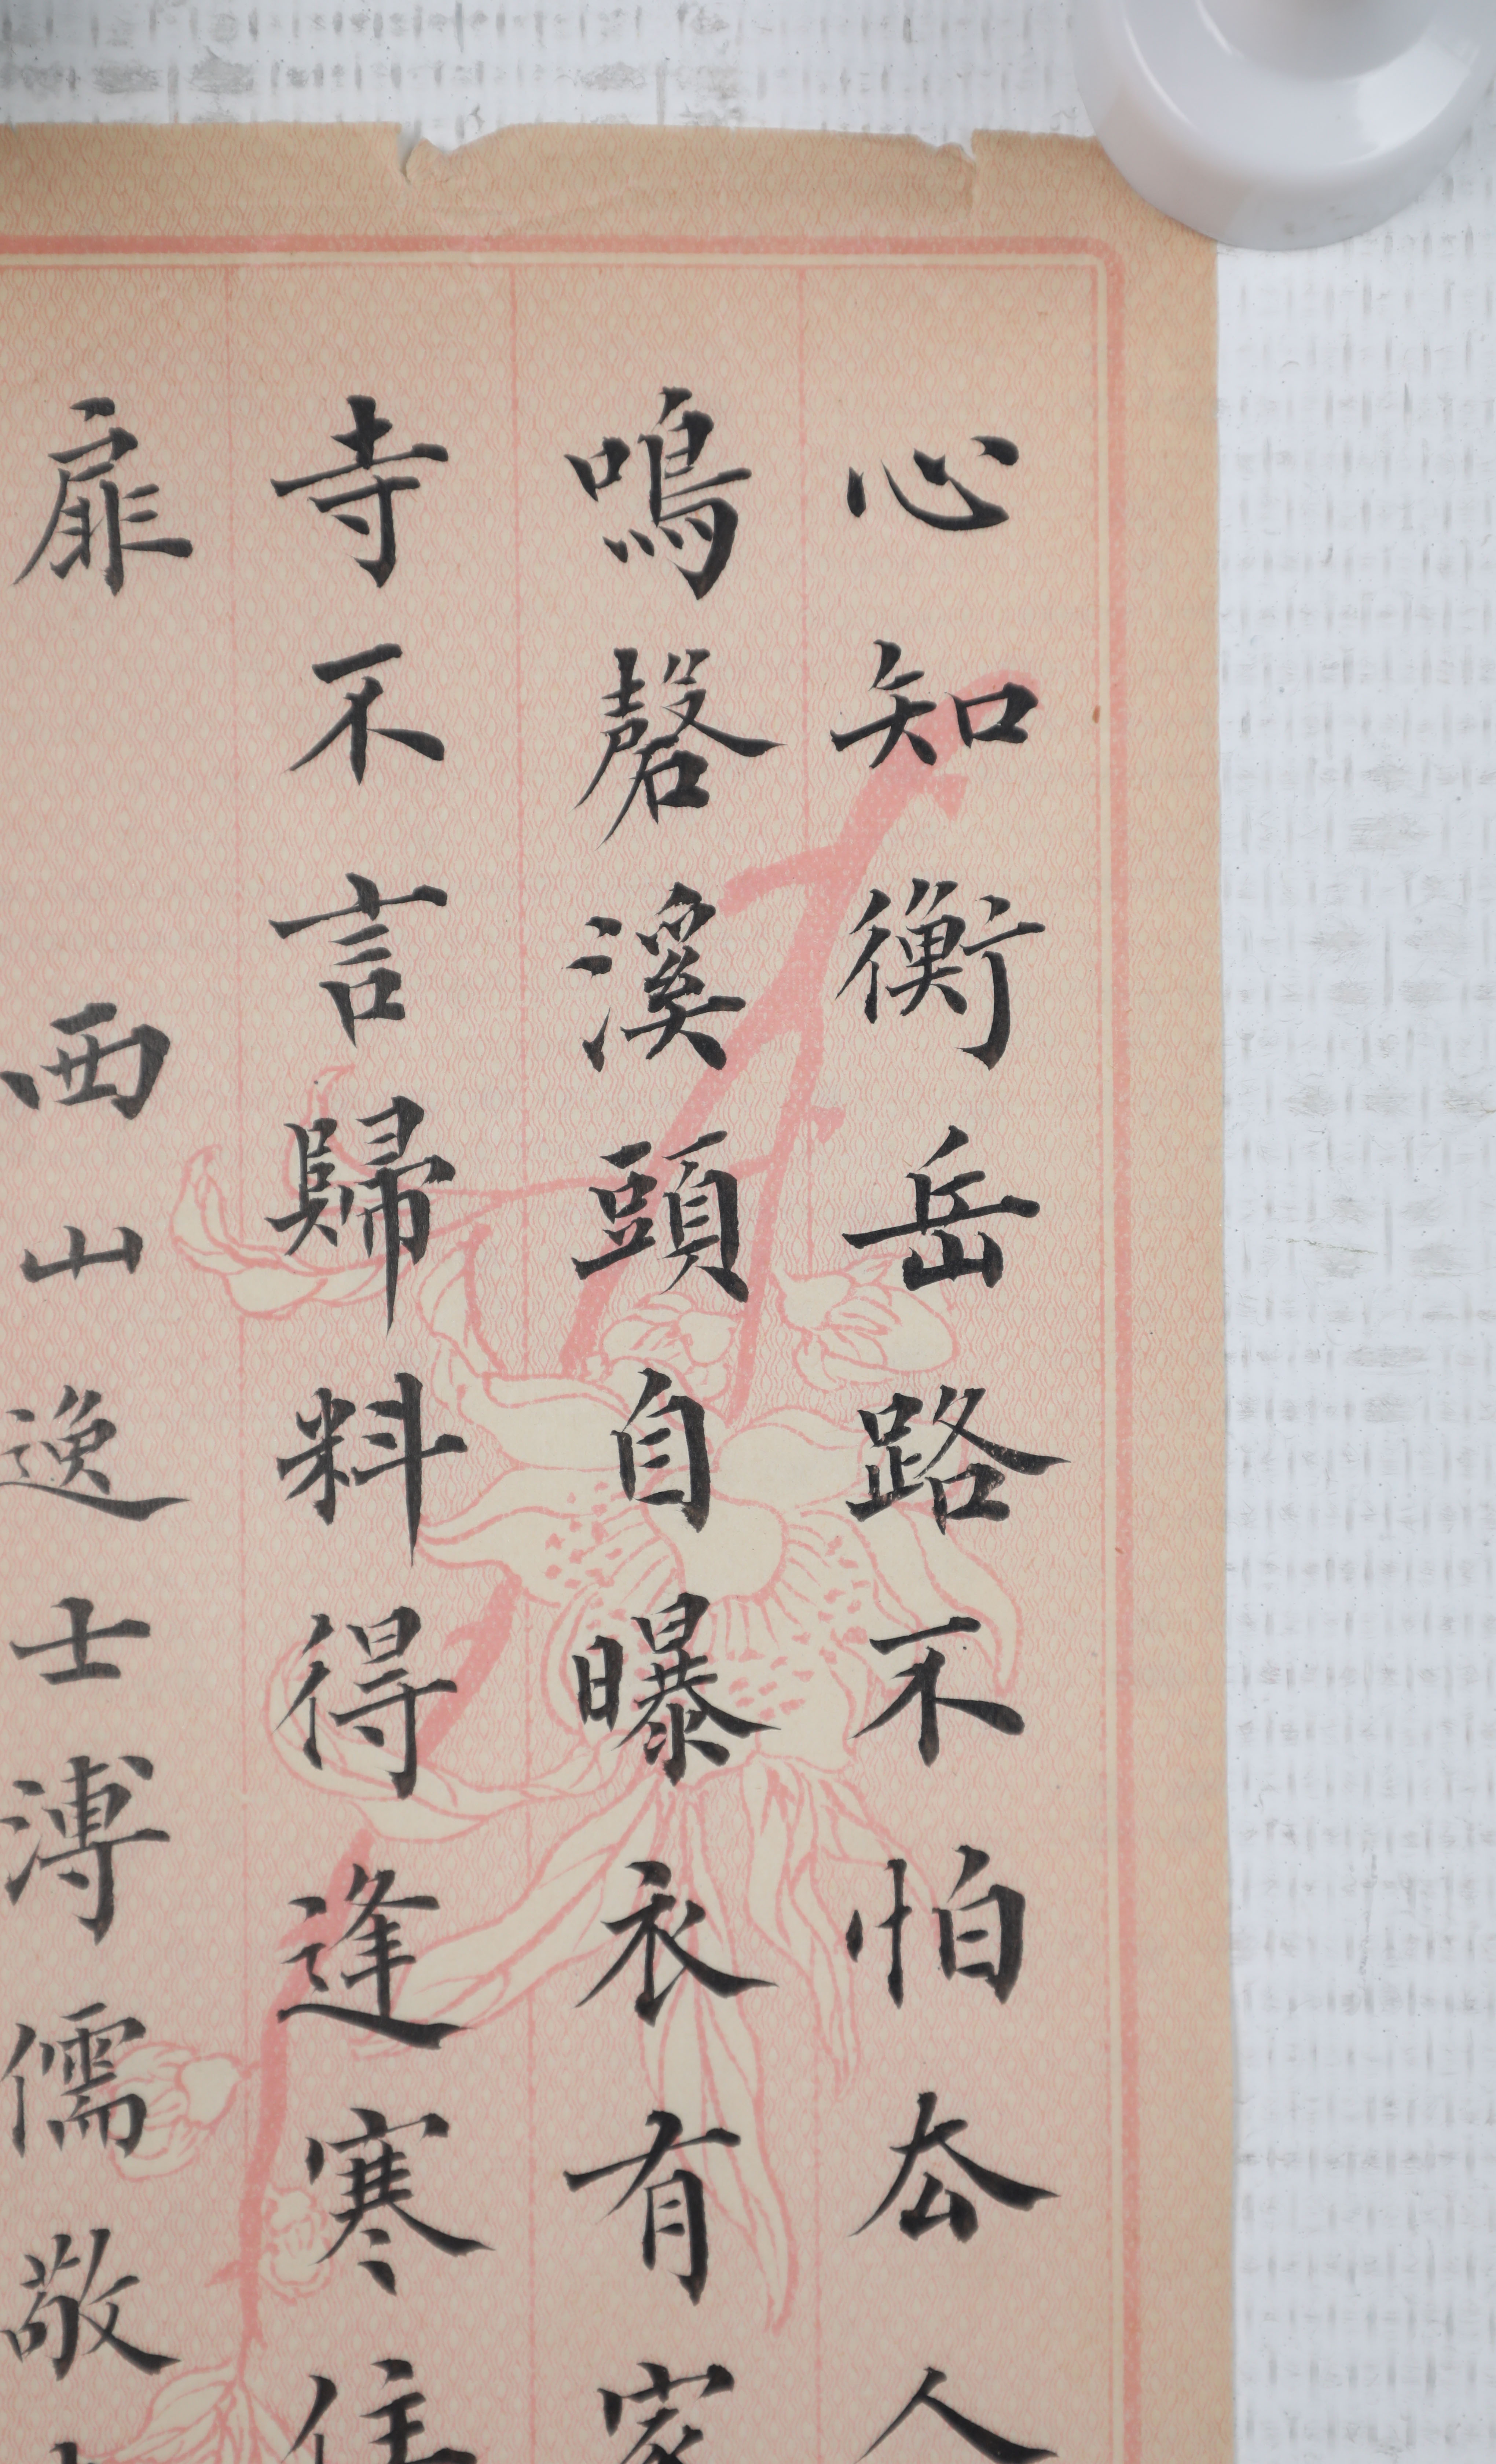 心知衡岳路不怕厺人
鳴磬溪頭自曝衣有家
寺不言歸料得逢寒住
扉　西山逸士溥儒敬